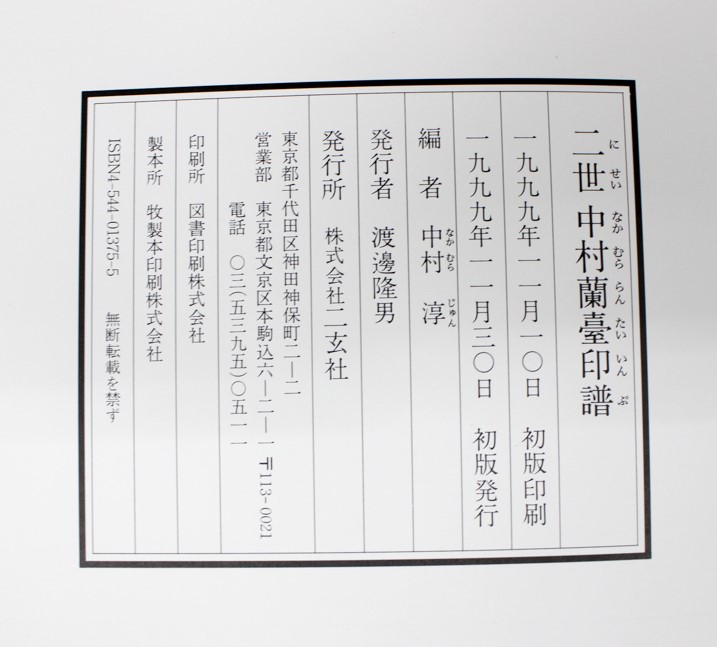 二世 中村蘭臺印譜
にせい なかむららんたいいんぷ
一九九九年一一月一〇日 初版印刷
一九九九年一一月三〇日 初版発行
編者 中村 淳
なかむら じゅん
発行者 渡邊隆男
発行所 株式会社二玄社
東京都千代田区神田神保町二―二
営業部 東京都文京区本駒込六―二―一 〒113-0021
電話 〇三(五三九五)〇五一一
印刷所 図書印刷株式会社
製本所 牧製本印刷株式会社
ISBN4-544-01375-5 無断転載を禁ず